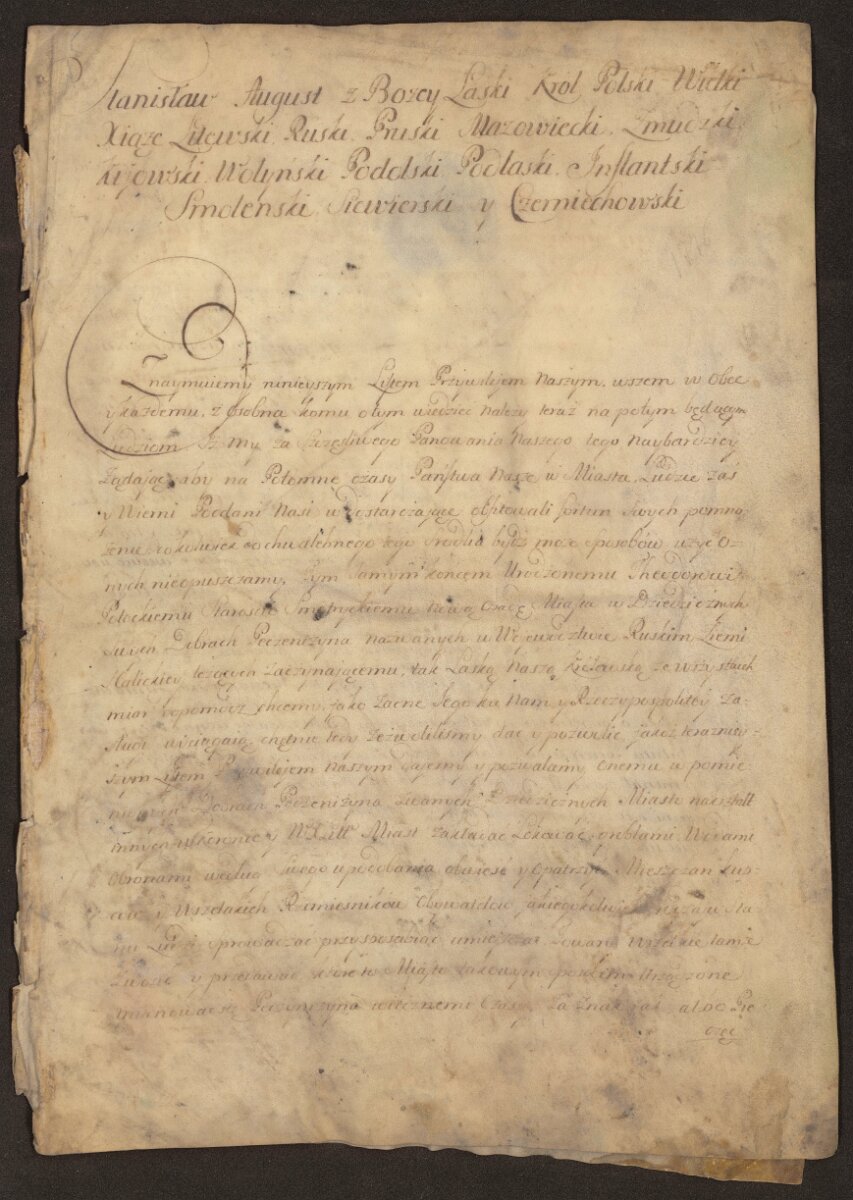 Stanisław August z Bozey Łaski Krol Polski Wielki
Xiąze Litewski Ruski Pruski Mazowiecki Zmudzki
Kijowski Wołyński Podolski Podlaski Inflantski
Smolenski Siewierski y Czerniechowski
Znaymuiemy ninieyszym Listem Przywilejem Naszym, wszem w Obec
y kazdemu, z osobna komu o tym wiedziec nalezy teraz na potym będącym
Ludziom Iz My za Szczęsliwego Panowania Naszego tego Naybardziey
Ządaiąc aby na Potomne czasy Państwa Nasze w Miasta Ludzie zaś
y Niemi Poddani Nasi w dostarczające obfitowali fortun swych pomno
zeniu do chwalebnego tego srodka bydz moze sposobow uzyc
nych nieopuszczamy, Tym samym koncem Urodzonemu Theodorowi
Potockiemu Staroscie Smotryckiemu nową Osadę Miasta w Dziedzicznych
swych Dobrach Peczeniżyna nazwanych w Wojewodztwie Ruskim Ziemi
Halickiey leżących zaczynającemu, tak Łaską Naszą Krolewską ze wszystkich
miar dopomodz chcemy, jako zacne Jego ku Nam y Rzeczypospolitey Za
sługi wyciągaią chętnie tedy zezwolilismy dac y pozwolic jakoz terazniey
szym Listem Przywilejem Naszym dajemy y pozwalamy Onemu w pomie
nionych Dobrach Peczeniżyna zwanych Dziedzicznych Miasto na kształt
innych w Koronie y W X Litt Miast zakładac Lokowac, groblami Wodami
Obronami według swego upodobania obwiesć y opatrzyc Mieszczan Kup
cow y Wszelakich Rzemiesnikow Obywatelow jakiegokolwiek Sta
nu Ludzi sprowadzac przysposabiac umieszczac Towary Wszelkie tamze
zwozic y przedawac ktore to Miasto takowym sposobem Urządzone
mianowac się Peczynizyna wiecznemi Czasy Za Znak Pie
częć